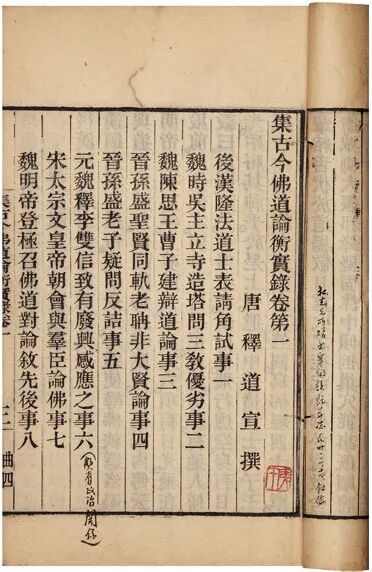 集古今佛道論衡實錄卷第一
唐釋道宣撰
後漢隆法道士表請角試事一
魏時吳主立寺造塔問三教優劣事二
魏陳思王曹子建辯道論事三
晉孫盛聖賢同軌老聃非大賢論事四
晉孫盛老子疑問反詰事五
元魏釋李雙信致有廢興感應之事六
有政治關係
宋太宗文皇帝朝會與羣臣論佛事七
魏明帝登極召佛道對論敘先後事八
集古今佛道論衡實錄卷一 曲四